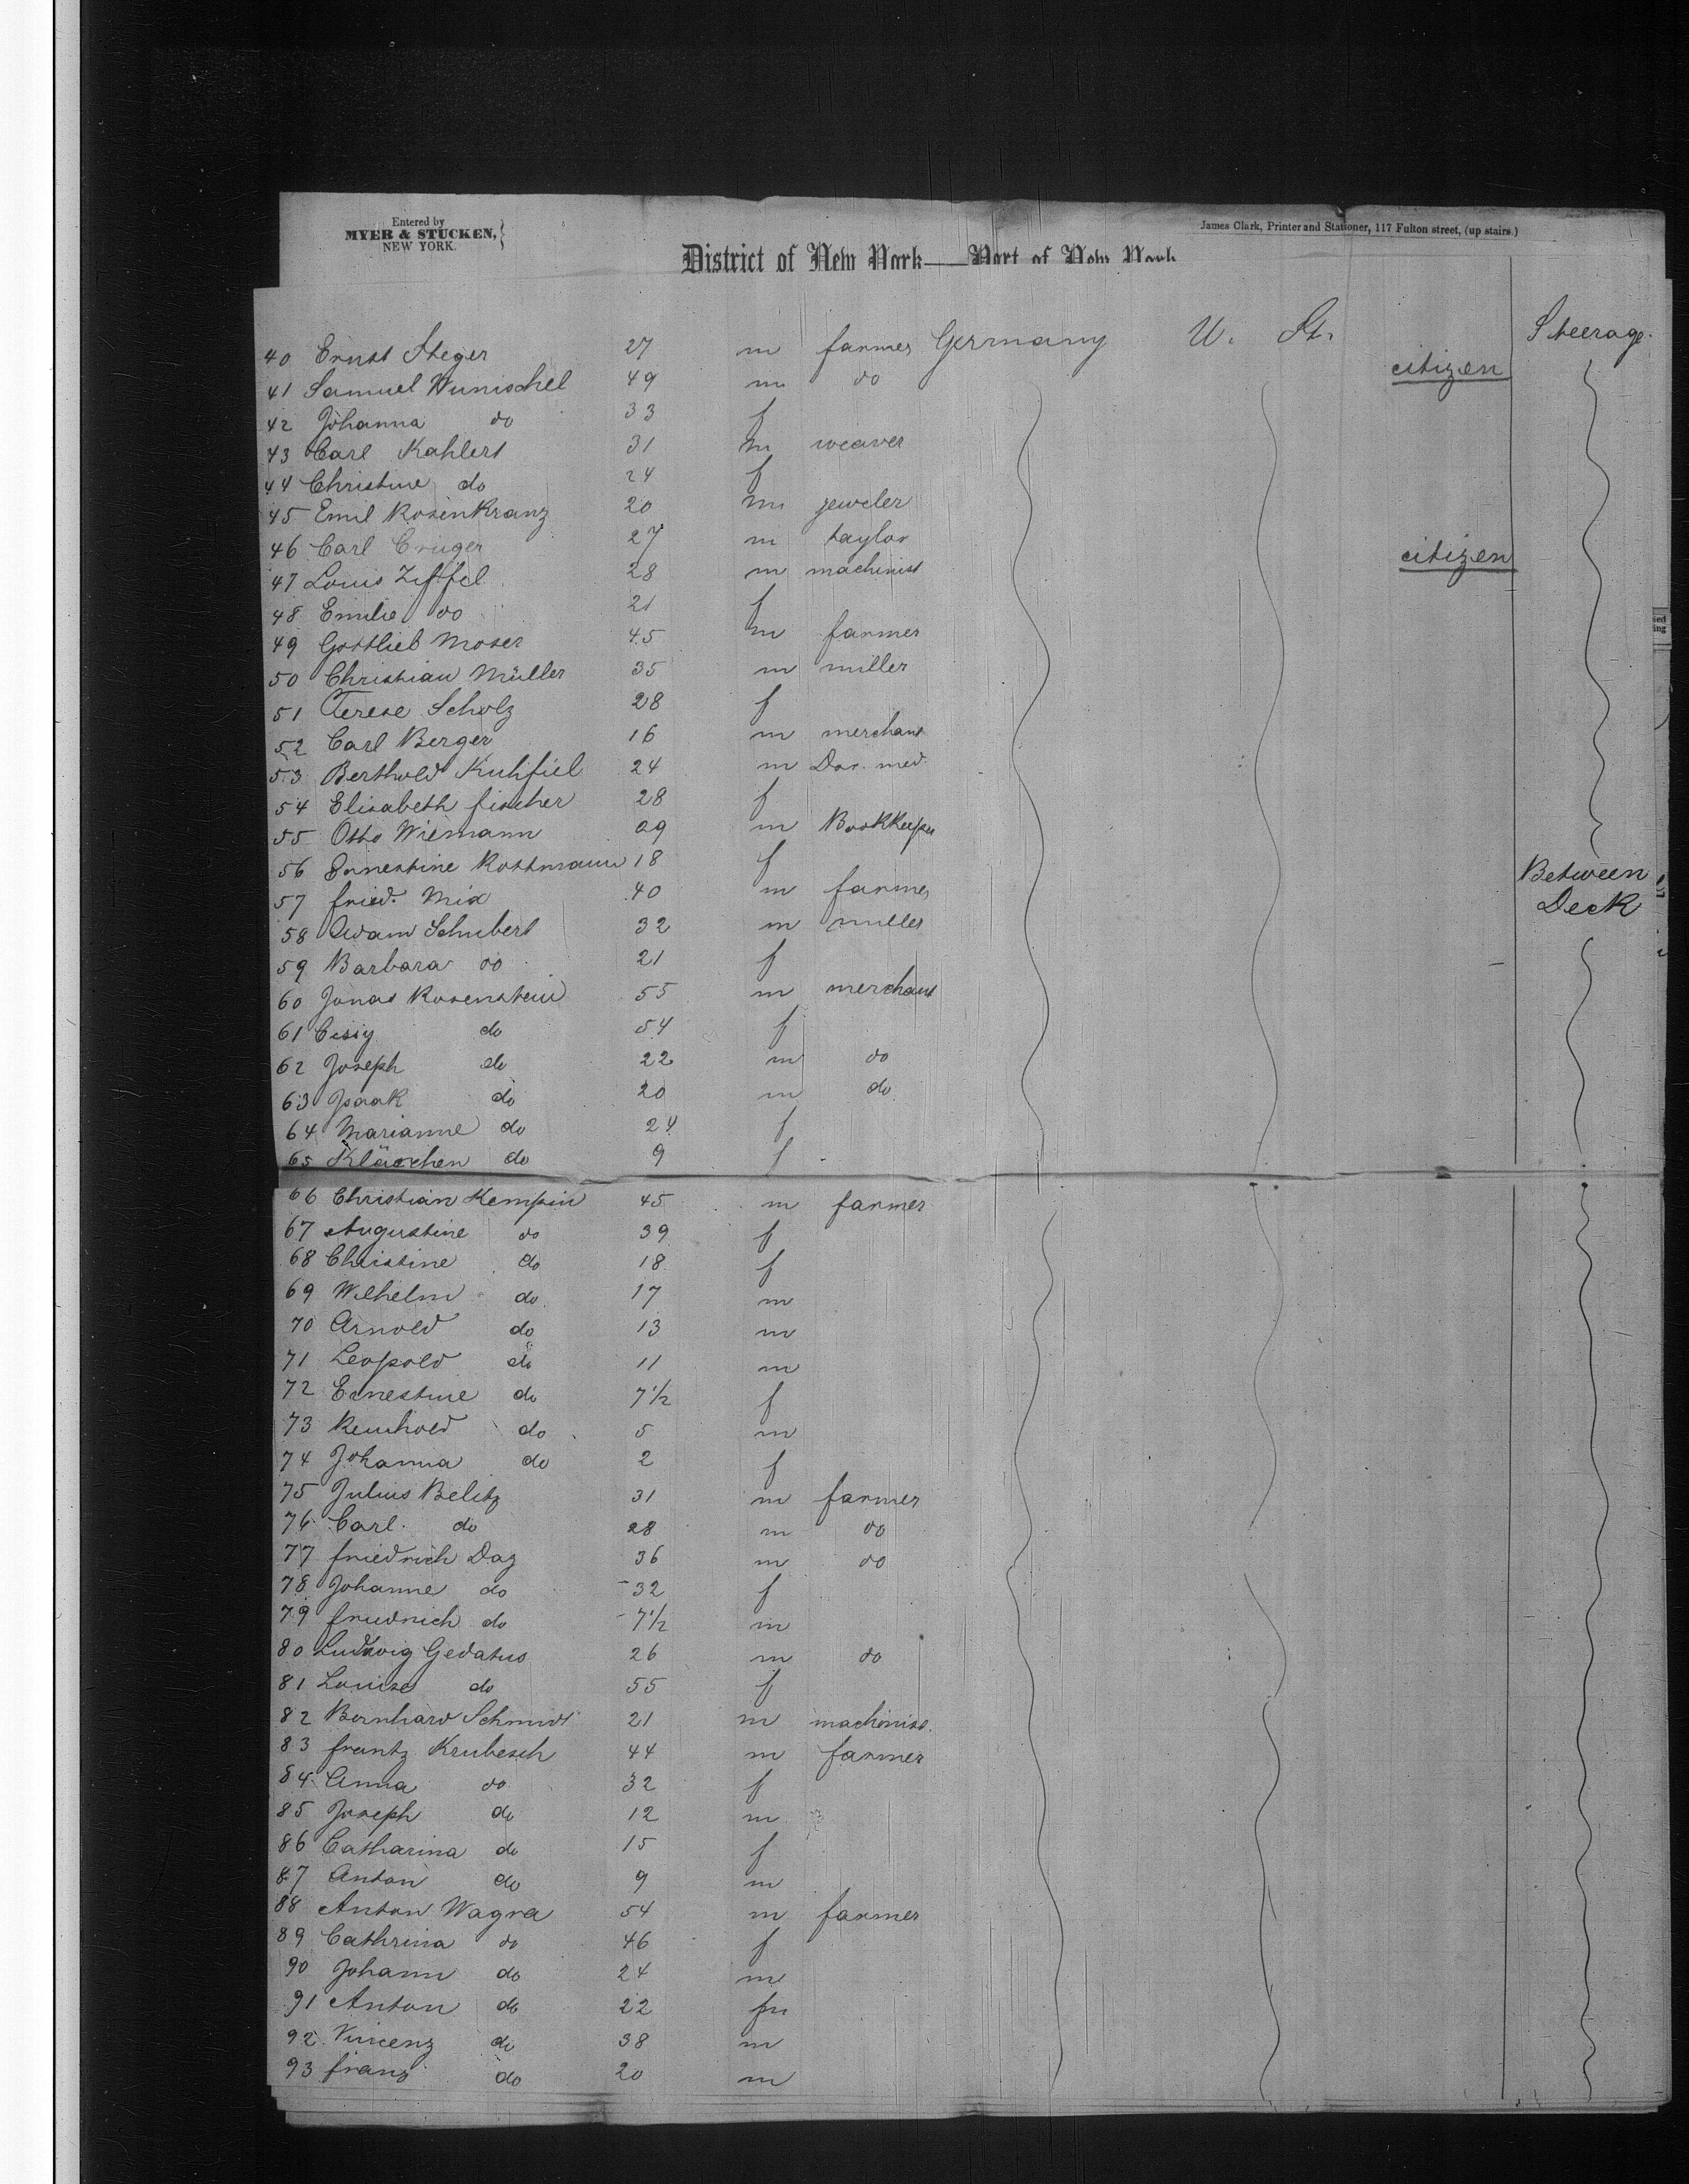 Entered by
MYER & STUCKEN,
NEW YORK.
James Clark, Printer and Stationer, 117 Fulton street, (up stairs.)
District of New York——Port of New York
40 Ernst Steger 27 m farmer Germany U. St. Steerage
41 Samuel Wunschel 49 m do citizen
42 Johanna do 33 f
43 Carl Kahlert 31 m weaver
44 Christine do 24 f
45 Emil Rosenkranz 20 m jeweler
46 Carl Cruger 27 m taylor
47 Louis Ziffel 28 m machinist citizen
48 Emilie do 21 f
49 Gottlieb Moser 45 m farmer
50 Christian Müller 35 m miller
51 Terese Scholz 28 f
52 Carl Berger 16 m merchant
53 Berthold Kuhfiel 24 m Doc. med.
54 Elisabeth fischer 28 f
55 Otto Wiemann 29 m Bookkeeper
56 Ernestine Rottmann 18 f
57 fried. Mix 40 m farmer Between
58 Adam Schubert 32 m miller Deck
59 Barbara do 21 f
60 Jonas Rosenstein 55 m merchant
61 Cissy do 54 f
62 Joseph do 22 m do
63 Isaak do 20 m do
64 Marianne do 24 f
65 Klärchen do 9 f
66 Christian Kempin 45 m farmer
67 Augustine do 39 f
68 Christine do 18 f
69 Wilhelm do 17 m
70 Arnold do 13 m
71 Leopold do 11 m
72 Ernestine do 7½ f
73 Reinhold do 5 m
74 Johanna do 2 f
75 Julius Belitz 31 m farmer
76 Carl do 28 m do
77 friedrich Daz 36 m do
78 Johanne do 32 f
79 friedrich do 7½ m
80 Ludwig Gedatus 26 m do
81 Louise do 55 f
82 Bernhard Schmidt 21 m machinist.
83 frantz Krubesch 44 m farmer
84 Anna do 32 f
85 Joseph do 12 m
86 Catharina do 15 f
87 Anton do 9 m
88 Anton Wagra 54 m farmer
89 Cathrina do 46 f
90 Johann do 24 m
91 Anton do 22 m
92 Vincenz do 38 m
93 franz do 20 m